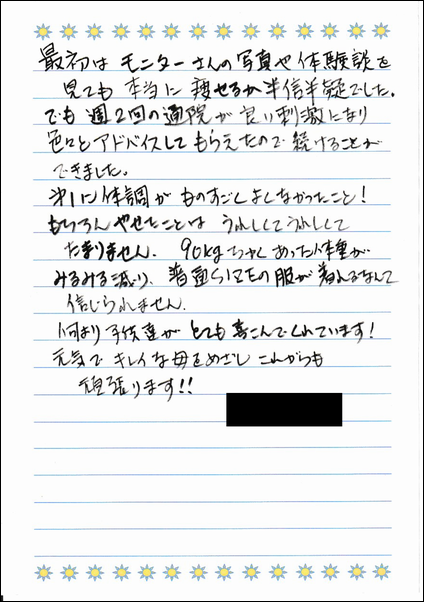 最初は モニターさんの写真や体験談を
見ても 本当に 痩せるか半信半疑でした。
でも 週2回の通院が 良い刺激になり
色々とアドバイスして もらえたので 続けることが
できました。
体調が ものすごくよくなったこと!
もちろん やせたことは うれしくてうれしくて
たまりません。 90kgちかくあった体重が
みるみる減り、普通SIZEの服が 着れるなんて
信じられません。
何より 子供達が とても 喜こんでくれています!
元気で キレイな母をめざし これからも
頑張ります!!